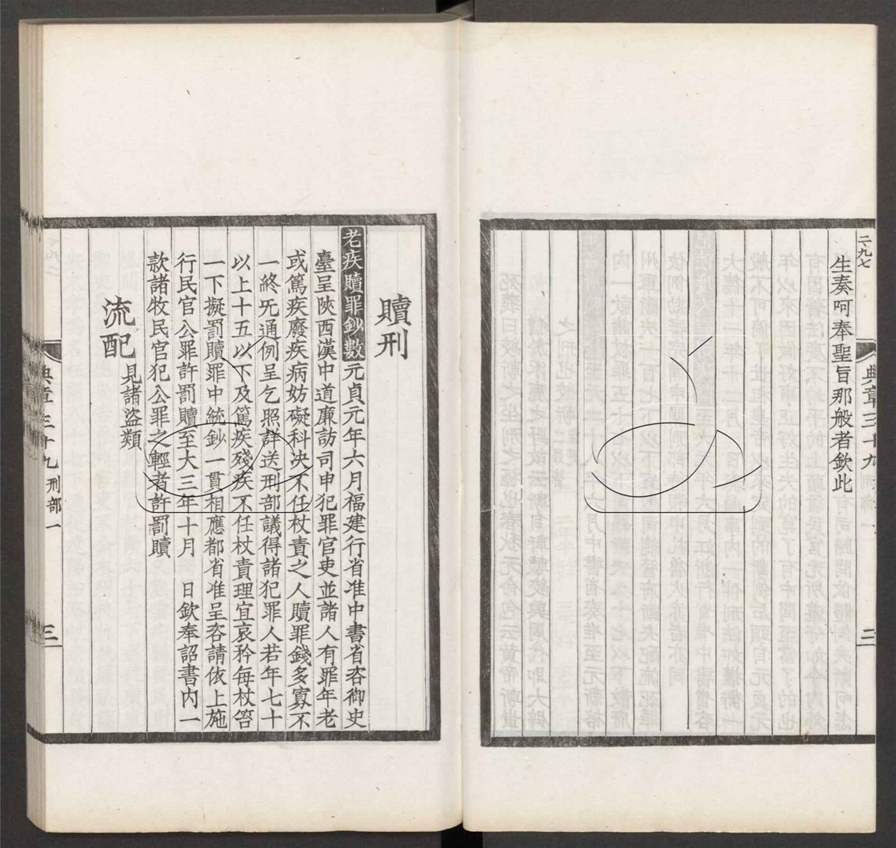 二九七
生奏呵奉聖旨那般者欽此
典章三十九
三
贖刑
老疾贖罪鈔數元貞元年六月福建行省准中書省咨御史
臺呈陝西漢中道廉訪司申犯罪官吏並諸人有罪年老
或篤疾廢疾病妨礙科决不任杖責之人贖罪錢多寡不
一終旡通例呈乞照詳送刑部議得諸犯罪人若年七十
以上十五以下及篤疾殘疾不任杖責理宜哀矜每杖笞
一下擬罰贖罪中統鈔一貫相應都省准呈咨請依上施
行民官公罪許罰贖至大三年十月 日欽奉詔書内一
款諸牧民官犯公罪之輕者許罰贖
流配
見諸盜類
典章三十九 刑部一
三